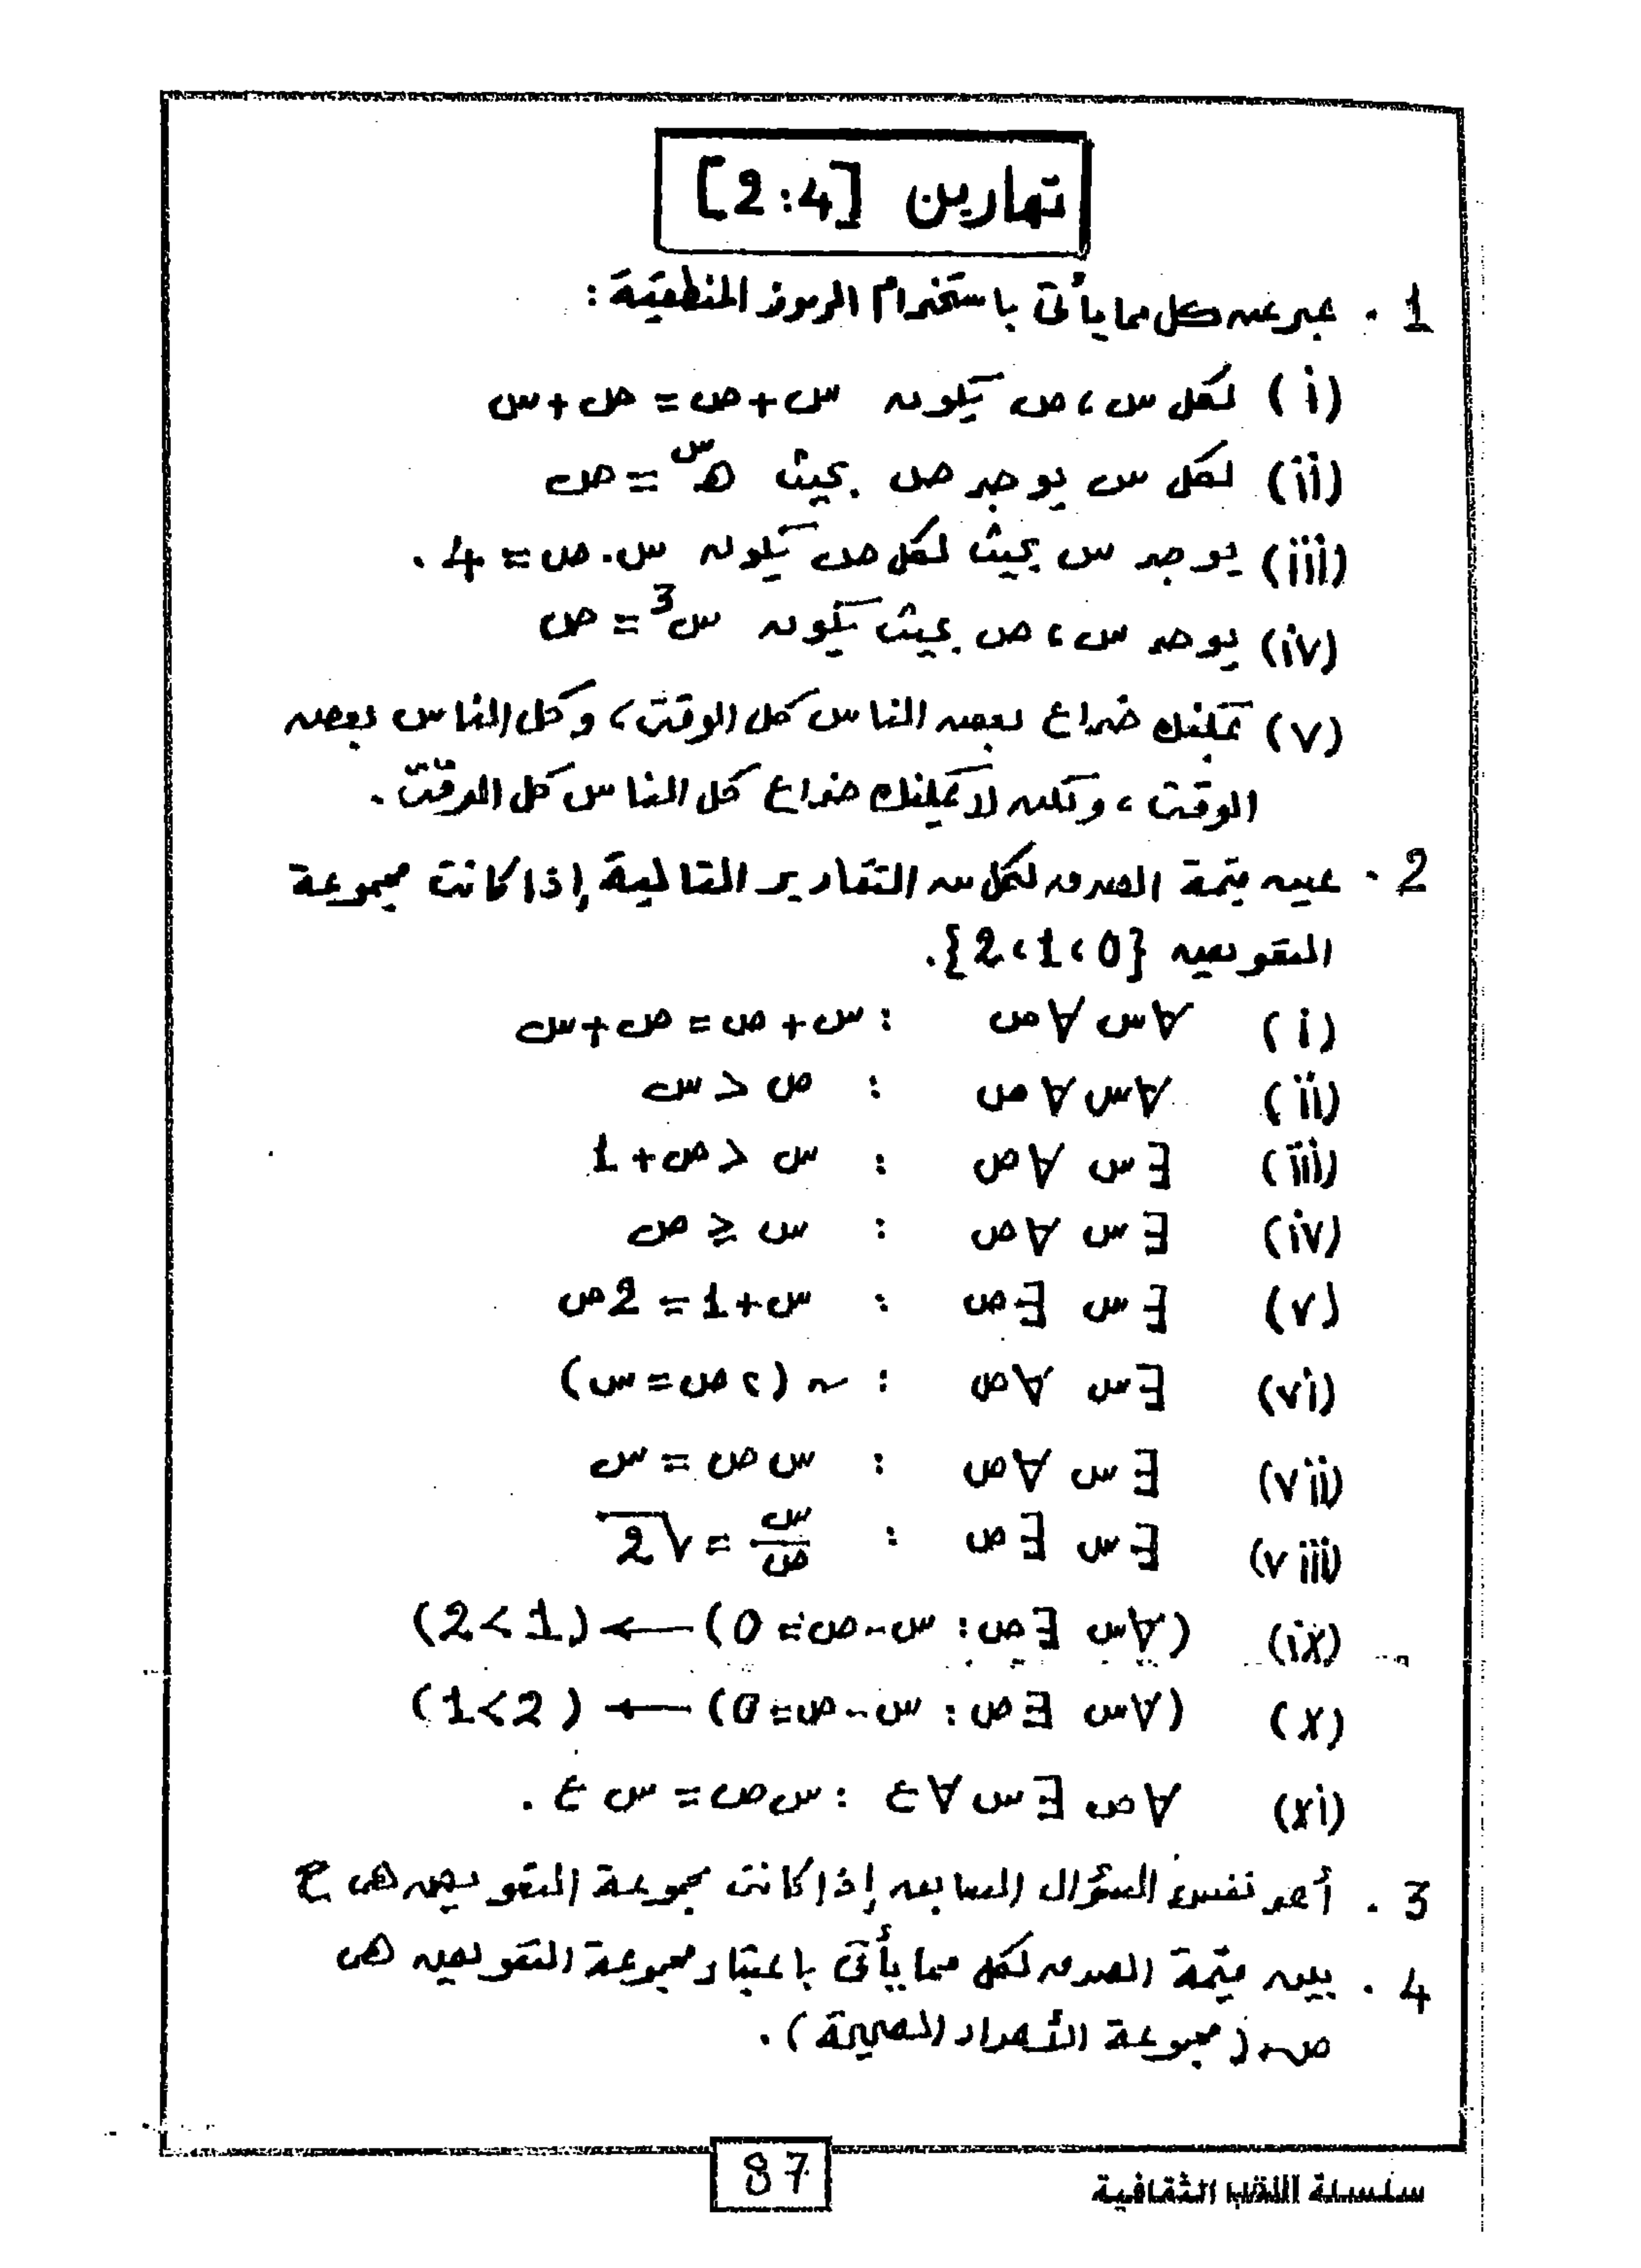 تمارين [2:4]
1 . عبر عن كل مما يأتي باستخدام الرموز المنطقية :
(i) لكل س ، ص يكون س + ص = ص + س
(ii) لكل س يوجد ص بحيث هـ^س = ص
(iii) يوجد س بحيث لكل ص يكون س . ص = 4 .
(iv) يوجد س ، ص بحيث يكون س^3 = ص
(v) يمكنك خداع بعض الناس كل الوقت ، وكل الناس بعض
الوقت ، ولكن لا يمكنك خداع كل الناس كل الوقت .
2 . عين قيمة الصدق لكل من التقارير التالية إذا كانت مجموعة
التعويض {0 ، 1 ، 2}.
(i) ∀س ∀ص : س + ص = ص + س
(ii) ∀س ∀ص : ص < س
(iii) ∃س ∀ص : س < ص + 1
(iv) ∃س ∀ص : س ≥ ص
(v) ∃س ∃ص : س + 1 = 2ص
(vi) ∃س ∀ص : ~ (2ص = س)
(vii) ∃س ∀ص : س ص = س
(viii) ∃س ∃ص : س/ص = √2
(ix) (∀س ∃ص : س - ص = 0) ← (1 > 2)
(x) (∀س ∃ص : س - ص = 0) ← (2 > 1)
(xi) ∀ص ∃س ∀ع : س ص = س ع .
3 . أعد نفس السؤال السابق إذا كانت مجموعة التعويض هي ح
4 . بين قيمة الصدق لكل مما يأتي باعتبار مجموعة التعويض هي
ص (مجموعة الأعداد الصحيحة) .
87
سلسلة الثقافية